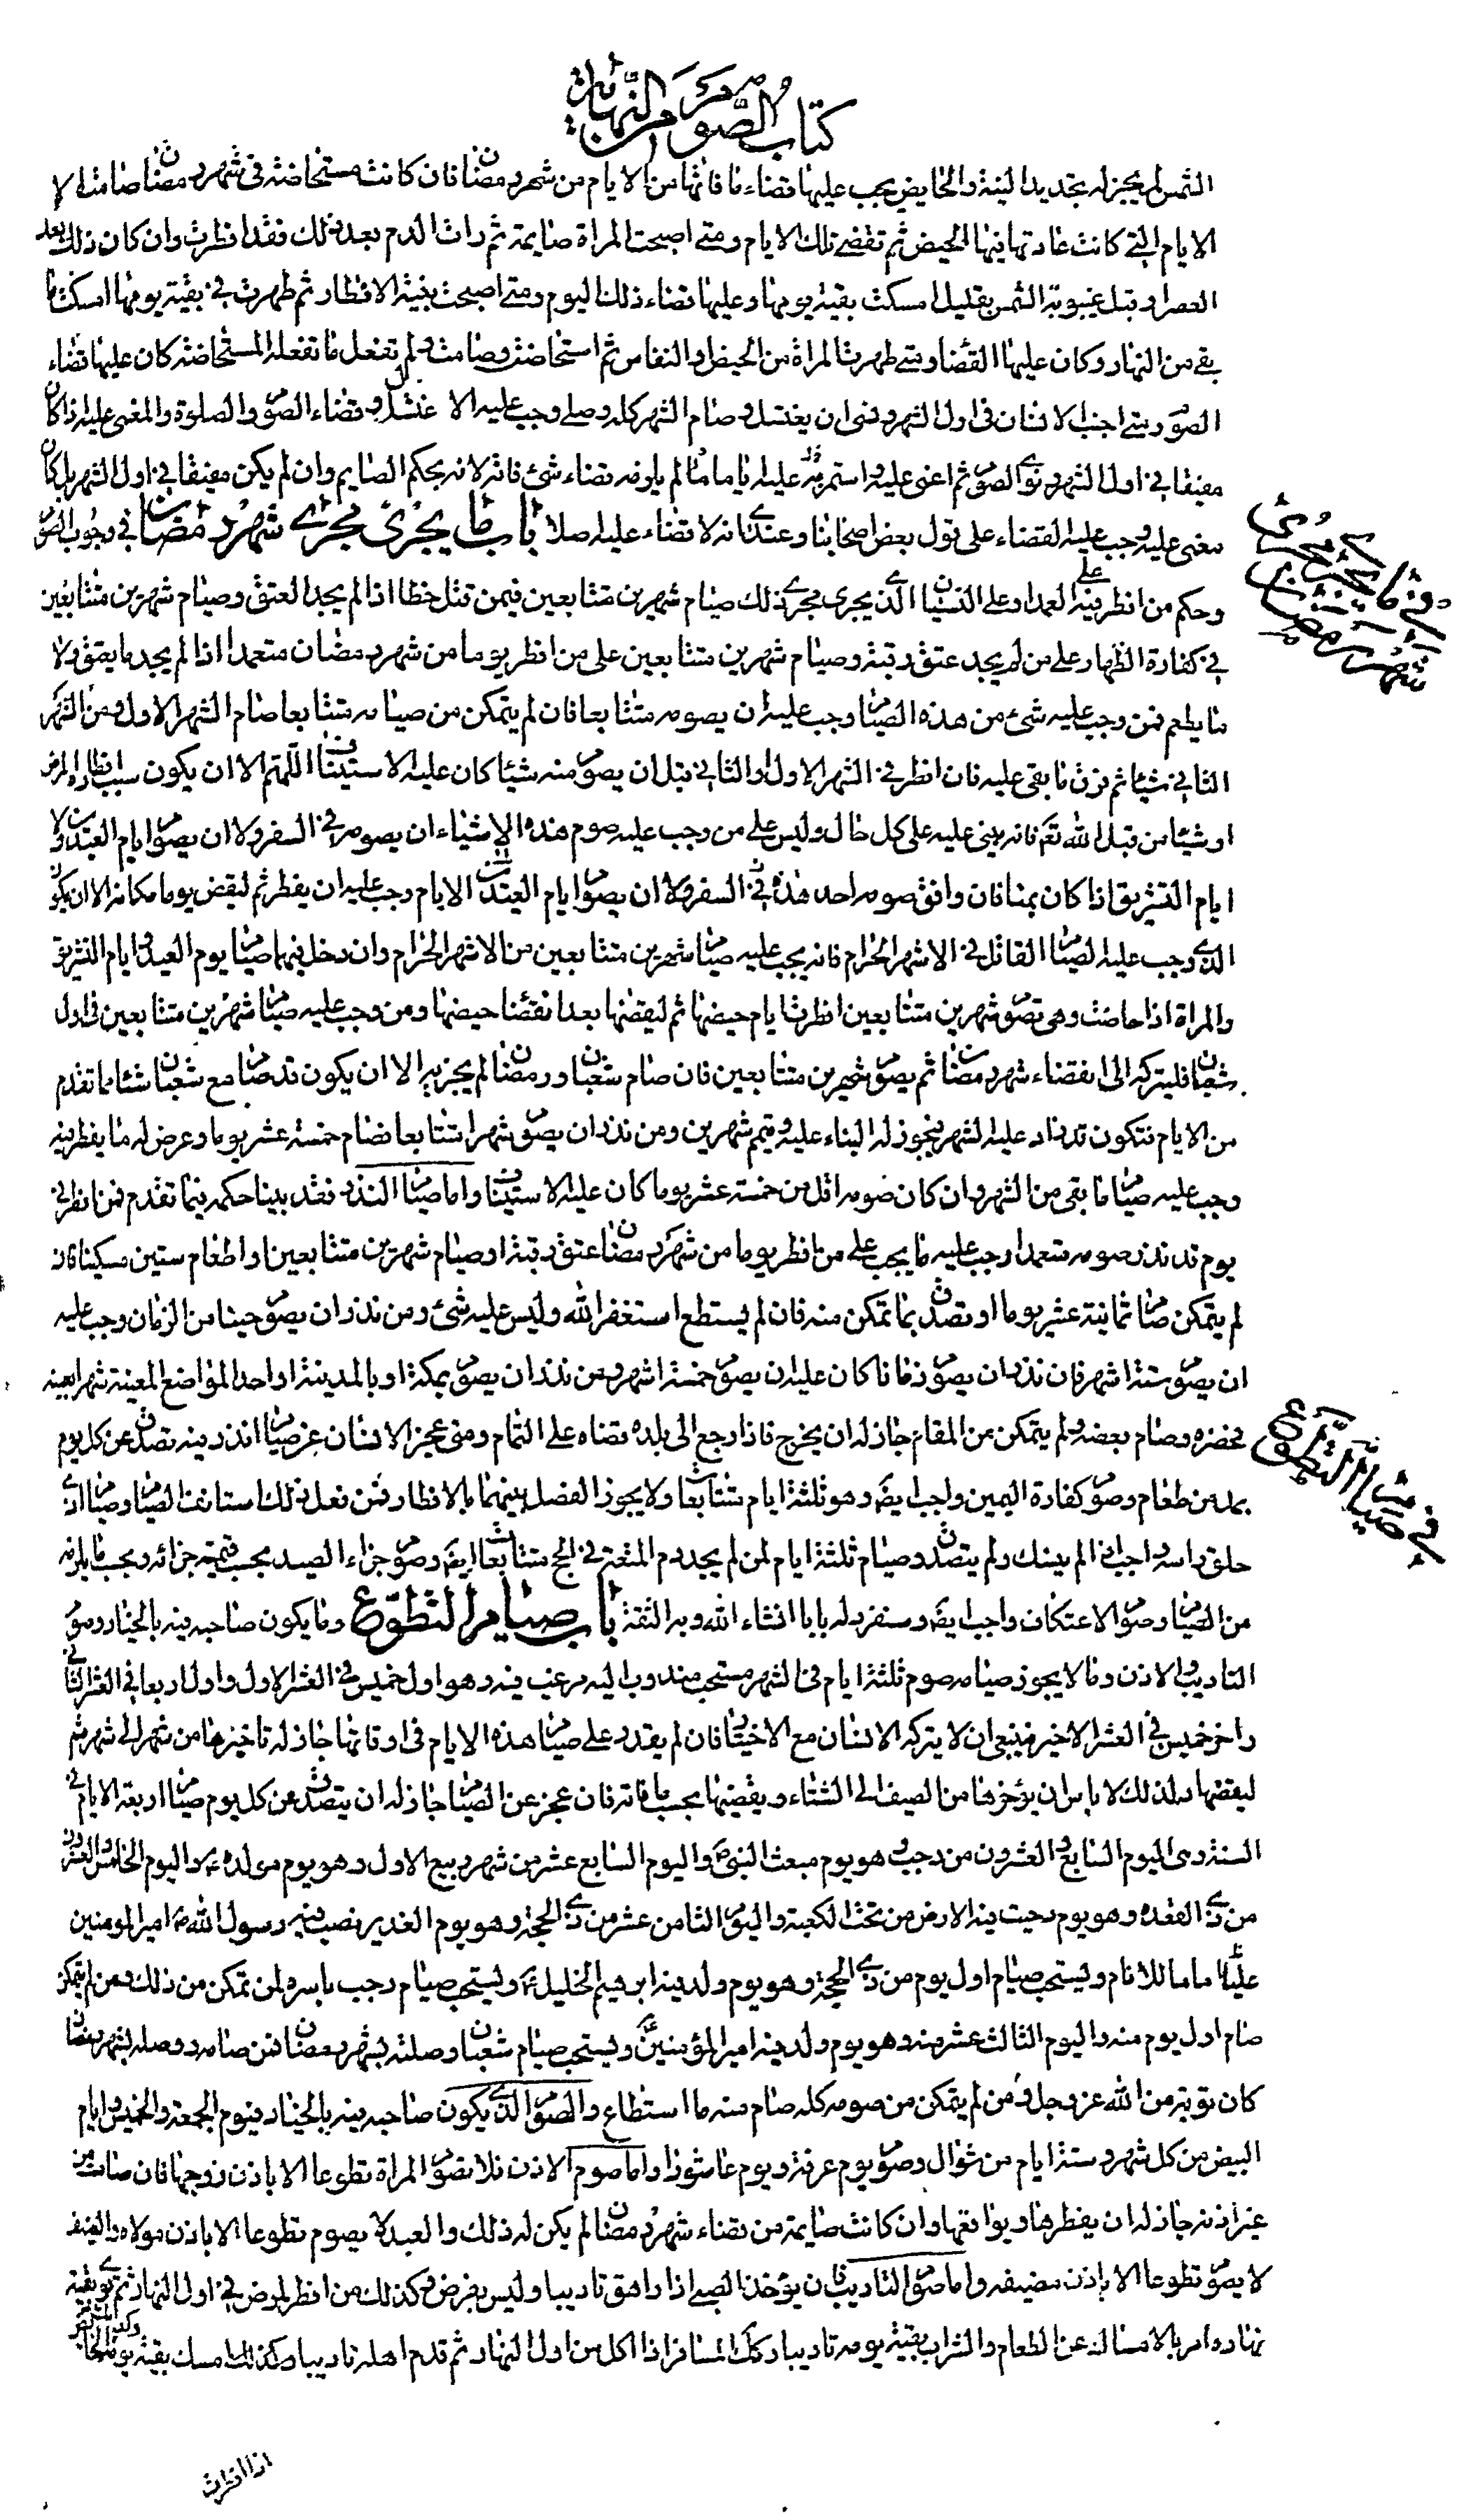 كتاب الصوم من النهاية
الشمس لم يجز له تجديد النية والحايض يجب عليها قضاء ما فاتها من الايام من شهر رمضان فان كانت مستحاضة في شهر رمضان صامت الا
الايام التي كانت عادتها فيها الحيض ثم تقضي تلك الايام ومتى اصبحت المراة صايمة ثم رات الدم بعد ذلك فقد افطرت وان كان ذلك بعد
العصر او قبل غيبوبة الشمس بقليل امسكت بقية يومها وعليها قضاء ذلك اليوم ومتى اصبحت بنية الافطار ثم طهرت في بقية يومها امسكت ما
بقي من النهار وكان عليها القضاء ومتى طهرت المراة من الحيض او النفاس ثم استحاضت وصامت ولم تفعل ما تفعله المستحاضة كان عليها قضاء
الصوم ومتى اجنب الانسان في اول الشهر ونسى ان يغتسل وصام الشهر كله وصلى وجب عليه الاغتسال وقضاء الصوم والصلوة والمغمى عليه اذا كان
مفيقا في اول الشهر ونوى الصوم ثم اغمى عليه واستمر به عليه اياما لم يلزمه قضاء شئ فاته لانه بحكم الصايم وان لم يكن مفيقا في اول الشهر بل كان
مغمى عليه وجب عليه القضاء على قول بعض اصحابنا وعندي انه لا قضاء عليه اصلا باب ما يجري مجرى شهر رمضان في وجوب الصوم
في ما يجري مجرى شهر رمضان
وحكم من افطر فيه على العمد او على النسيان الذي يجري مجرى ذلك صيام شهرين متتابعين فيمن قتل خطا اذا لم يجد العتق وصيام شهرين متتابعين
في كفارة الظهار على من لم يجد عتق رقبة وصيام شهرين متتابعين على من افطر يوما من شهر رمضان متعمدا اذا لم يجد ما يعتق ولا
ما يطعم فمن وجب عليه شئ من هذه الصيام وجب عليه ان يصومه متتابعا فان لم يتمكن من صيامه متتابعا صام الشهر الاول ومن الشهر
الثاني شيئا ثم فرق ما بقى عليه فان افطر في الشهر الاول او الثاني قبل ان يصوم منه شيئا كان عليه الاستيناف اللهم الا ان يكون سبب افطاره المرض
او شيئا من قبل الله تعالى فانه يبنى عليه على كل حال وليس على من وجب عليه صوم هذه الاشياء ان يصومه في السفر ولا ان يصوم ايام العيدين ولا
ايام التشريق اذا كان بمنا فان وافق صومه احد هذه في السفر ولا ان يصوم ايام العيدين الايام وجب عليه ان يفطر ثم ليقض يوما مكانه الا ان يكون
الذي وجب عليه الصيام القاتل في الاشهر الحرام فانه يجب عليه صيام شهرين متتابعين من الاشهر الحرام وان دخل فيهما صيام يوم العيد وايام التشريق
والمراة اذا حاضت وهي تصوم شهرين متتابعين افطرت ايام حيضها ثم لتقضها بعد انقضاء حيضها ومن وجب عليه صيام شهرين متتابعين في اول
شعبان فليتركه الى انقضاء شهر رمضان ثم يصوم شهرين متتابعين فان صام شعبان ورمضان لم يجز به الا ان يكون قد صام مع شعبان شيئا مما تقدم
من الايام فتكون قد زاد عليه الشهر فيجوز له البناء عليه ويتمم شهرين ومن نذر ان يصوم شهرا متتابعا فصام خمسة عشر يوما وعرض له ما يفطر فيه
وجب عليه صيام ما بقى من الشهر وان كان صومه اقل من خمسة عشر يوما كان عليه الاستيناف واما صيام النذر فقد بينا حكمه فيما تقدم فمن افطر في
يوم قد نذر صومه متعمدا وجب عليه ما يجب على من افطر يوما من شهر رمضان عتق رقبة او صيام شهرين متتابعين او اطعام ستين مسكينا فان
لم يتمكن صام ثمانية عشر يوما او تصدق بما تمكن منه فان لم يستطع استغفر الله وليس عليه شئ ومن نذر ان يصوم حينا من الزمان وجب عليه
ان يصوم ستة اشهر فان نذر ان يصوم زمانا كان عليه ان يصوم خمسة اشهر ومن نذر ان يصوم بمكة او بالمدينة او احد المواضع المعينة شهرا بعينه
فحضره وصام بعضه ولم يتمكن من المقام جاز له ان يخرج فاذا رجع الى بلده قضاه على التمام ومتى عجز الانسان عن صيام ما نذر فيه تصدق عن كل يوم
في صيام التطوع
بمد من طعام وصوم كفارة اليمين واجب ايضا وهو ثلثة ايام متتابعات ولا يجوز الفصل بينهما بالافطار فمن فعل ذلك استانف الصيام وصيام اذى
حلق راسه واجب اذا لم ينسك ولم يتصدق وصيام ثلثة ايام لمن لم يجد دم المتعة في الحج متتابعات ايضا وصوم جزاء الصيد بحسب قيمة جزائه وبحسب ما يلزمه
من الصيام وصوم الاعتكاف واجب ايضا وسنفرد له بابا انشاء الله وبه الثقة باب صيام التطوع وما يكون صاحبه فيه بالخيار وصوم
التاديب والاذن وما لا يجوز صيامه صوم ثلثة ايام في الشهر مستحب مندوب اليه مرغب فيه وهو اول خميس في العشر الاول واول اربعا في العشر الثاني
واخر خميس في العشر الاخير فينبغي ان لا يتركه الانسان مع الاختيار فان لم يقدر على صيام هذه الايام في اوقاتها جاز له تاخيرها من شهر الى شهر ثم
ليقضها وكذلك لا باس ان يؤخرها من الصيف الى الشتاء ويقضيها بحسب ما فاته فان عجز عن الصيام جاز له ان يتصدق عن كل يوم صيام اربعة الايام في
السنة وهي اليوم السابع والعشرون من رجب وهو يوم مبعث النبي واليوم السابع عشر من شهر ربيع الاول وهو يوم مولده واليوم الخامس والعشرون
من ذي القعده وهو يوم دحيت فيه الارض من تحت الكعبة واليوم الثامن عشر من ذي الحجة وهو يوم الغدير نصب فيه رسول الله امير المومنين
عليا اماما للانام ويستحب صيام اول يوم من ذي الحجة وهو يوم ولد فيه ابرهيم الخليل ويستحب صيام رجب باسره لمن تمكن من ذلك ومن لم يتمكن
صام اول يوم منه واليوم الثالث عشر منه وهو يوم ولد فيه امير المؤمنين ويستحب صيام شعبان وصلته بشهر رمضان فمن صامه ووصله بشهر رمضان
كان توبة من الله عز وجل ومن لم يتمكن من صومه كله صام منه ما استطاع والصوم الذي يكون صاحبه فيه بالخيار فيوم الجمعة والخميس وايام
البيض من كل شهر وستة ايام من شوال وصوم يوم عرفة ويوم عاشورا واما صوم الاذن فلا تصوم المراة تطوعا الا باذن زوجها فان صامت من
غير اذنه جاز له ان يفطرها ويواقعها وان كانت صايمة من قضاء شهر رمضان لم يكن له ذلك والعبد لا يصوم تطوعا الا باذن مولاه والضيف
لا يصوم تطوعا الا باذن مضيفه واما صوم التاديب فان يؤخذ الصبي اذا راهق تاديبا وليس بفرض وكذلك من افطر لمرض في اول النهار ثم قوى بقية
نهاره امر بالامساك عن الطعام والشراب بقية يومه تاديبا وكذلك المسافر اذا اكل من اول النهار ثم قدم اهله تاديبا وكذلك امسك بقية يومه الحايض
اذا افطرت